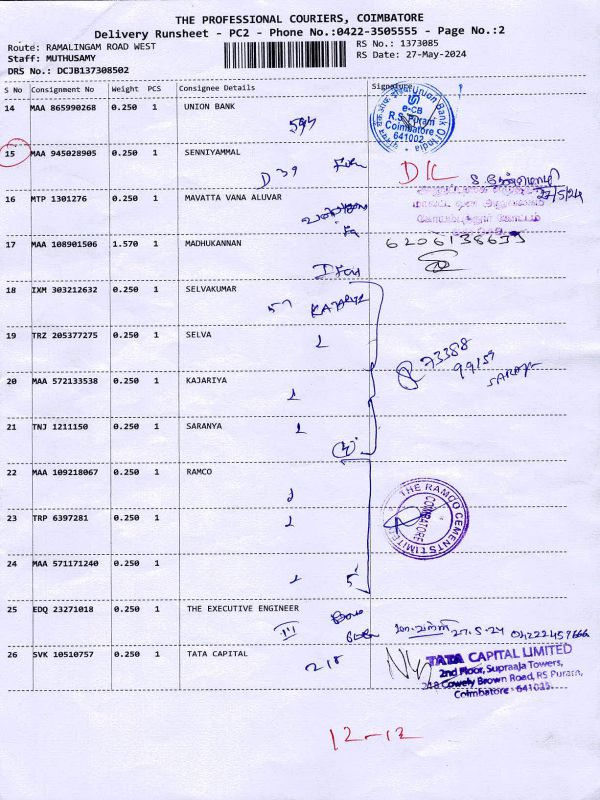 THE PROFESSIONAL COURIERS, COIMBATORE
Delivery Runsheet - PC2 - Phone No.:0422-3505555 - Page No.:2
Route: RAMALINGAM ROAD WEST
RS No.: 1373085
Staff: MUTHUSAMY
RS Date: 27-May-2024
DRS No.: DCJB137308502
S No Consignment No Weight PCS Consignee Details Signature
14 MAA 865990268 0.250 1 UNION BANK
Union Bank Of India
e-CB
R.S. Puram
Coimbatore
641002
15 MAA 945028905 0.250 1 SENNIYAMMAL
D 39
D/L
16 MTP 1301276 0.250 1 MAVATTA VANA ALUVAR
27/5/24
17 MAA 108901506 1.570 1 MADHUKANNAN
18 IXM 303212632 0.250 1 SELVAKUMAR
57 KAJARIYA
19 TRZ 205377275 0.250 1 SELVA
73388
99159
20 MAA 572133538 0.250 1 KAJARIYA
21 TNJ 1211150 0.250 1 SARANYA
22 MAA 109218067 0.250 1 RAMCO
THE RAMCO CEMENTS LIMITED
COIMBATORE
23 TRP 6397281 0.250 1
24 MAA 571171240 0.250 1
5
25 EDQ 23271018 0.250 1 THE EXECUTIVE ENGINEER
27.5.24
26 SVK 10510757 0.250 1 TATA CAPITAL
218
TATA CAPITAL LIMITED
2nd Floor, Supraaja Towers,
218 Cowely Brown Road, RS Puram,
Coimbatore - 641025.
12-12